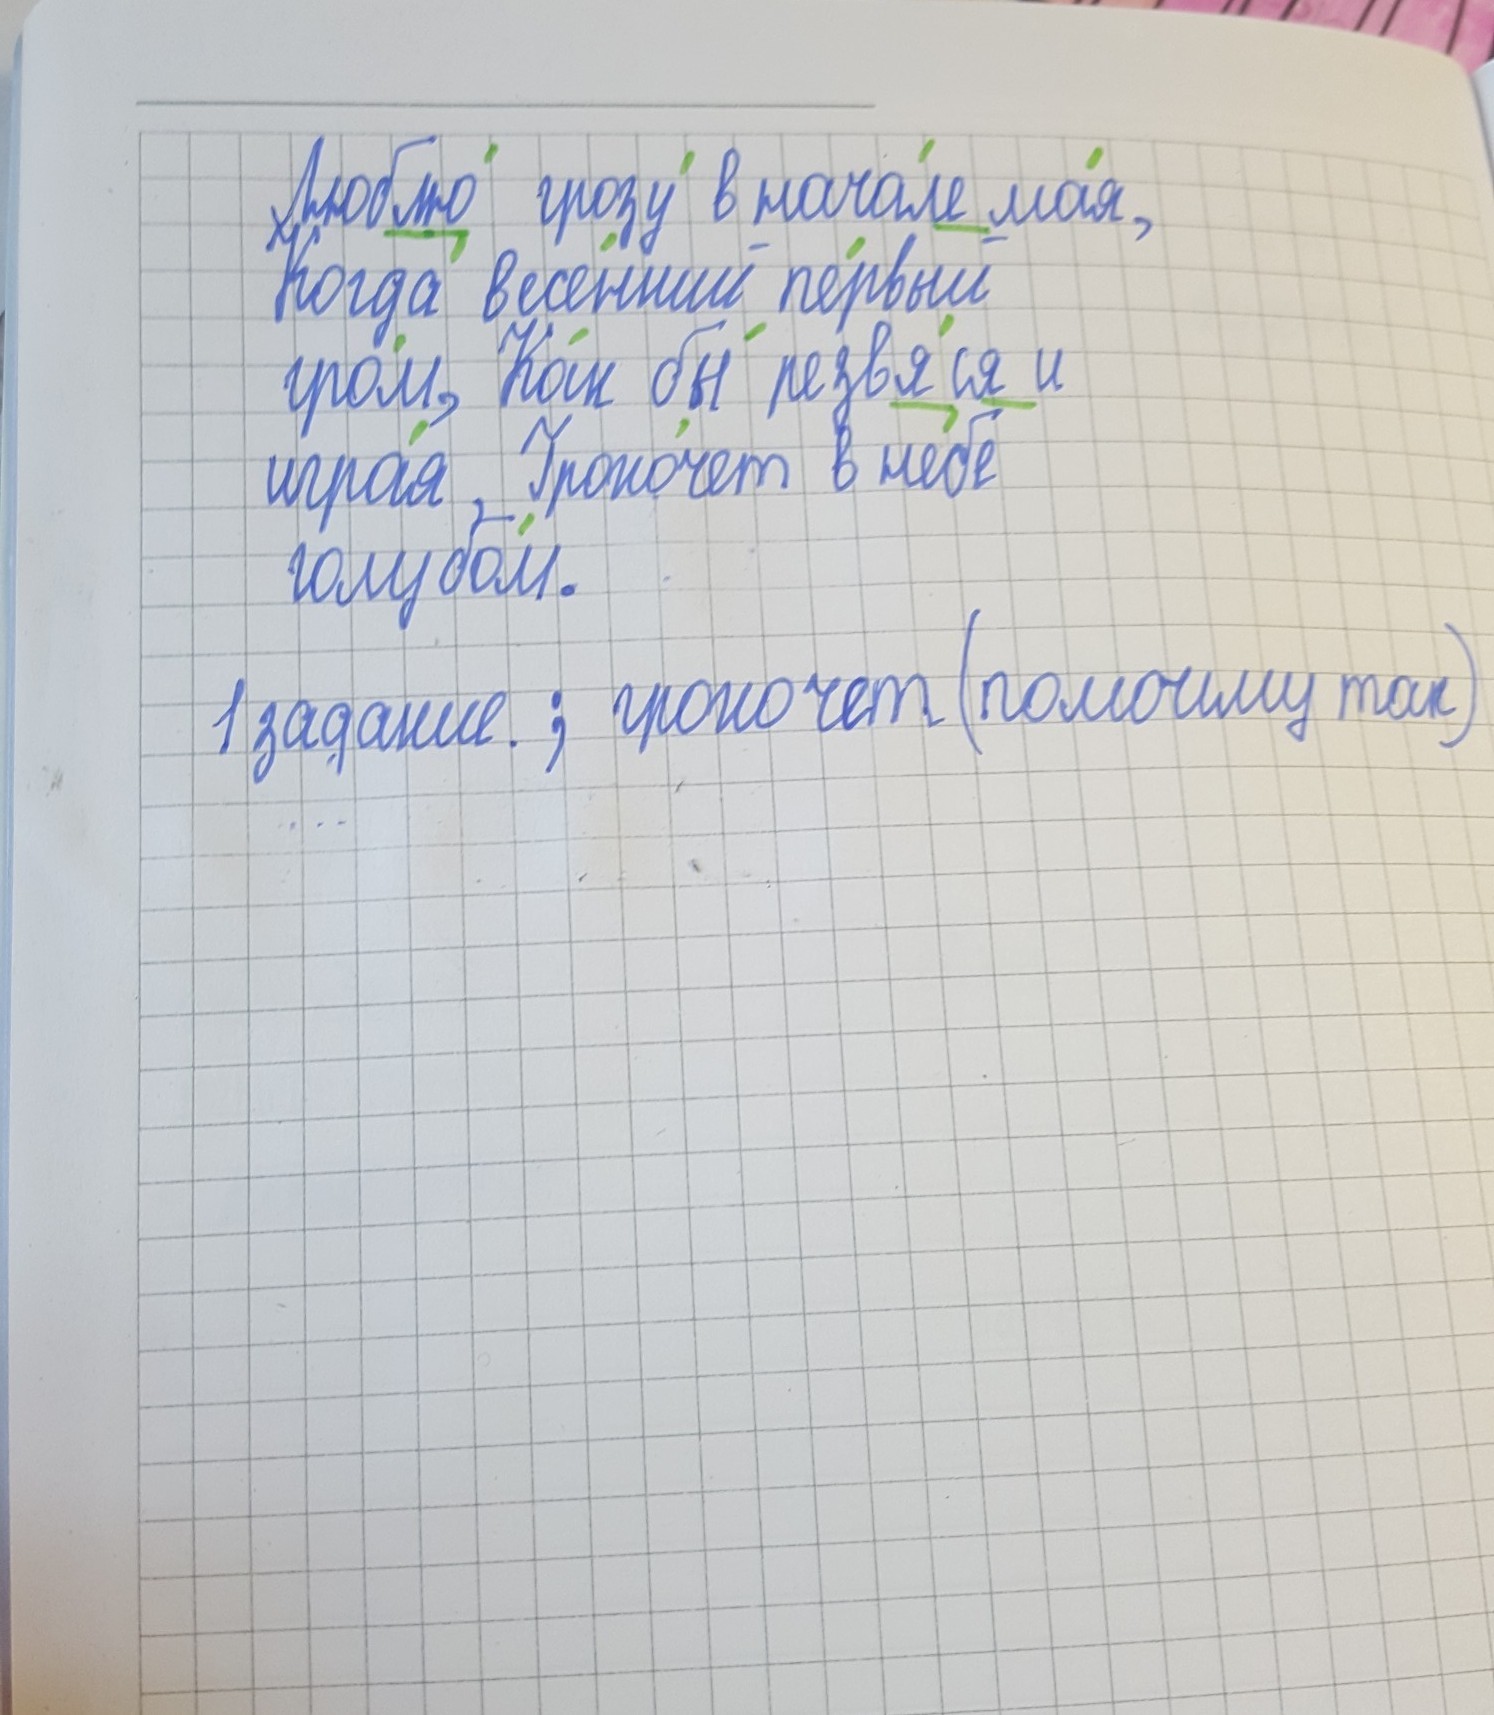 Люблю́ грозу́ в нача́ле ма́я,
Когда́ весе́нний пе́рвый
гро́м, Ка́к бы́ резвя́ся и
игра́я, Грохо́чет в не́бе
голубо́м.
1 задание. ; грохочет (помоиму так)